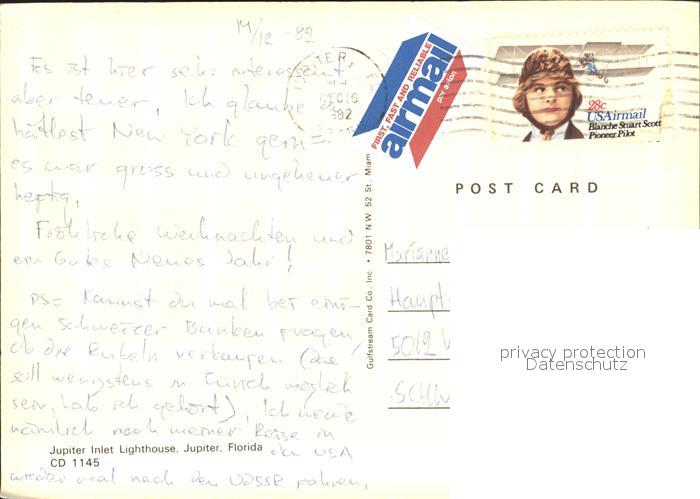 14/12 - 82
Es ist hier sehr interessant
aber teuer. Ich glaube du
hättest New York gern =
es war gross und ungeheuer
heftig.
Fröhliche Weihnachten und
ein Gutes Neues Jahr!
PS = Kannst du mal bei eini-
gen Schweizer Banken fragen,
ob die Rubeln verkaufen (das
soll wenigstens in Zürich möglich
sein, hab ich gehört). Ich
nämlich nach meiner Reise in
den USA
wieder mal nach der UDSSR fahren.
Jupiter Inlet Lighthouse, Jupiter, Florida
CD 1145
Gulfstream Card Co., Inc. • 7801 N.W. 52 St. Miam
DEC 16
1982
FIRST, FAST AND RELIABLE
airmail
par avion
28c
USAirmail
Blanche Stuart Scott
Pioneer Pilot
POST CARD
Marianne
Haupt
5012
SCHW
privacy protection
Datenschutz